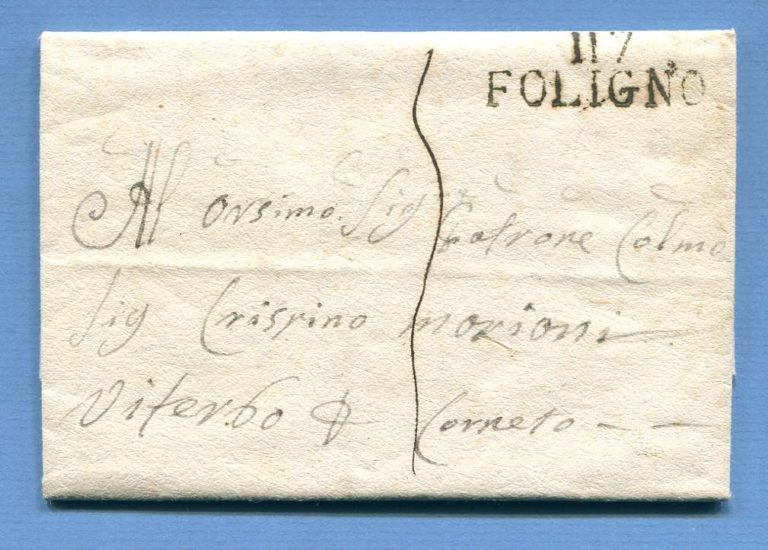 117
FOLIGNO
Al orsimo. Sig Patrone Colmo
Sig Crispino morioni
Viterbo P Corneto - -